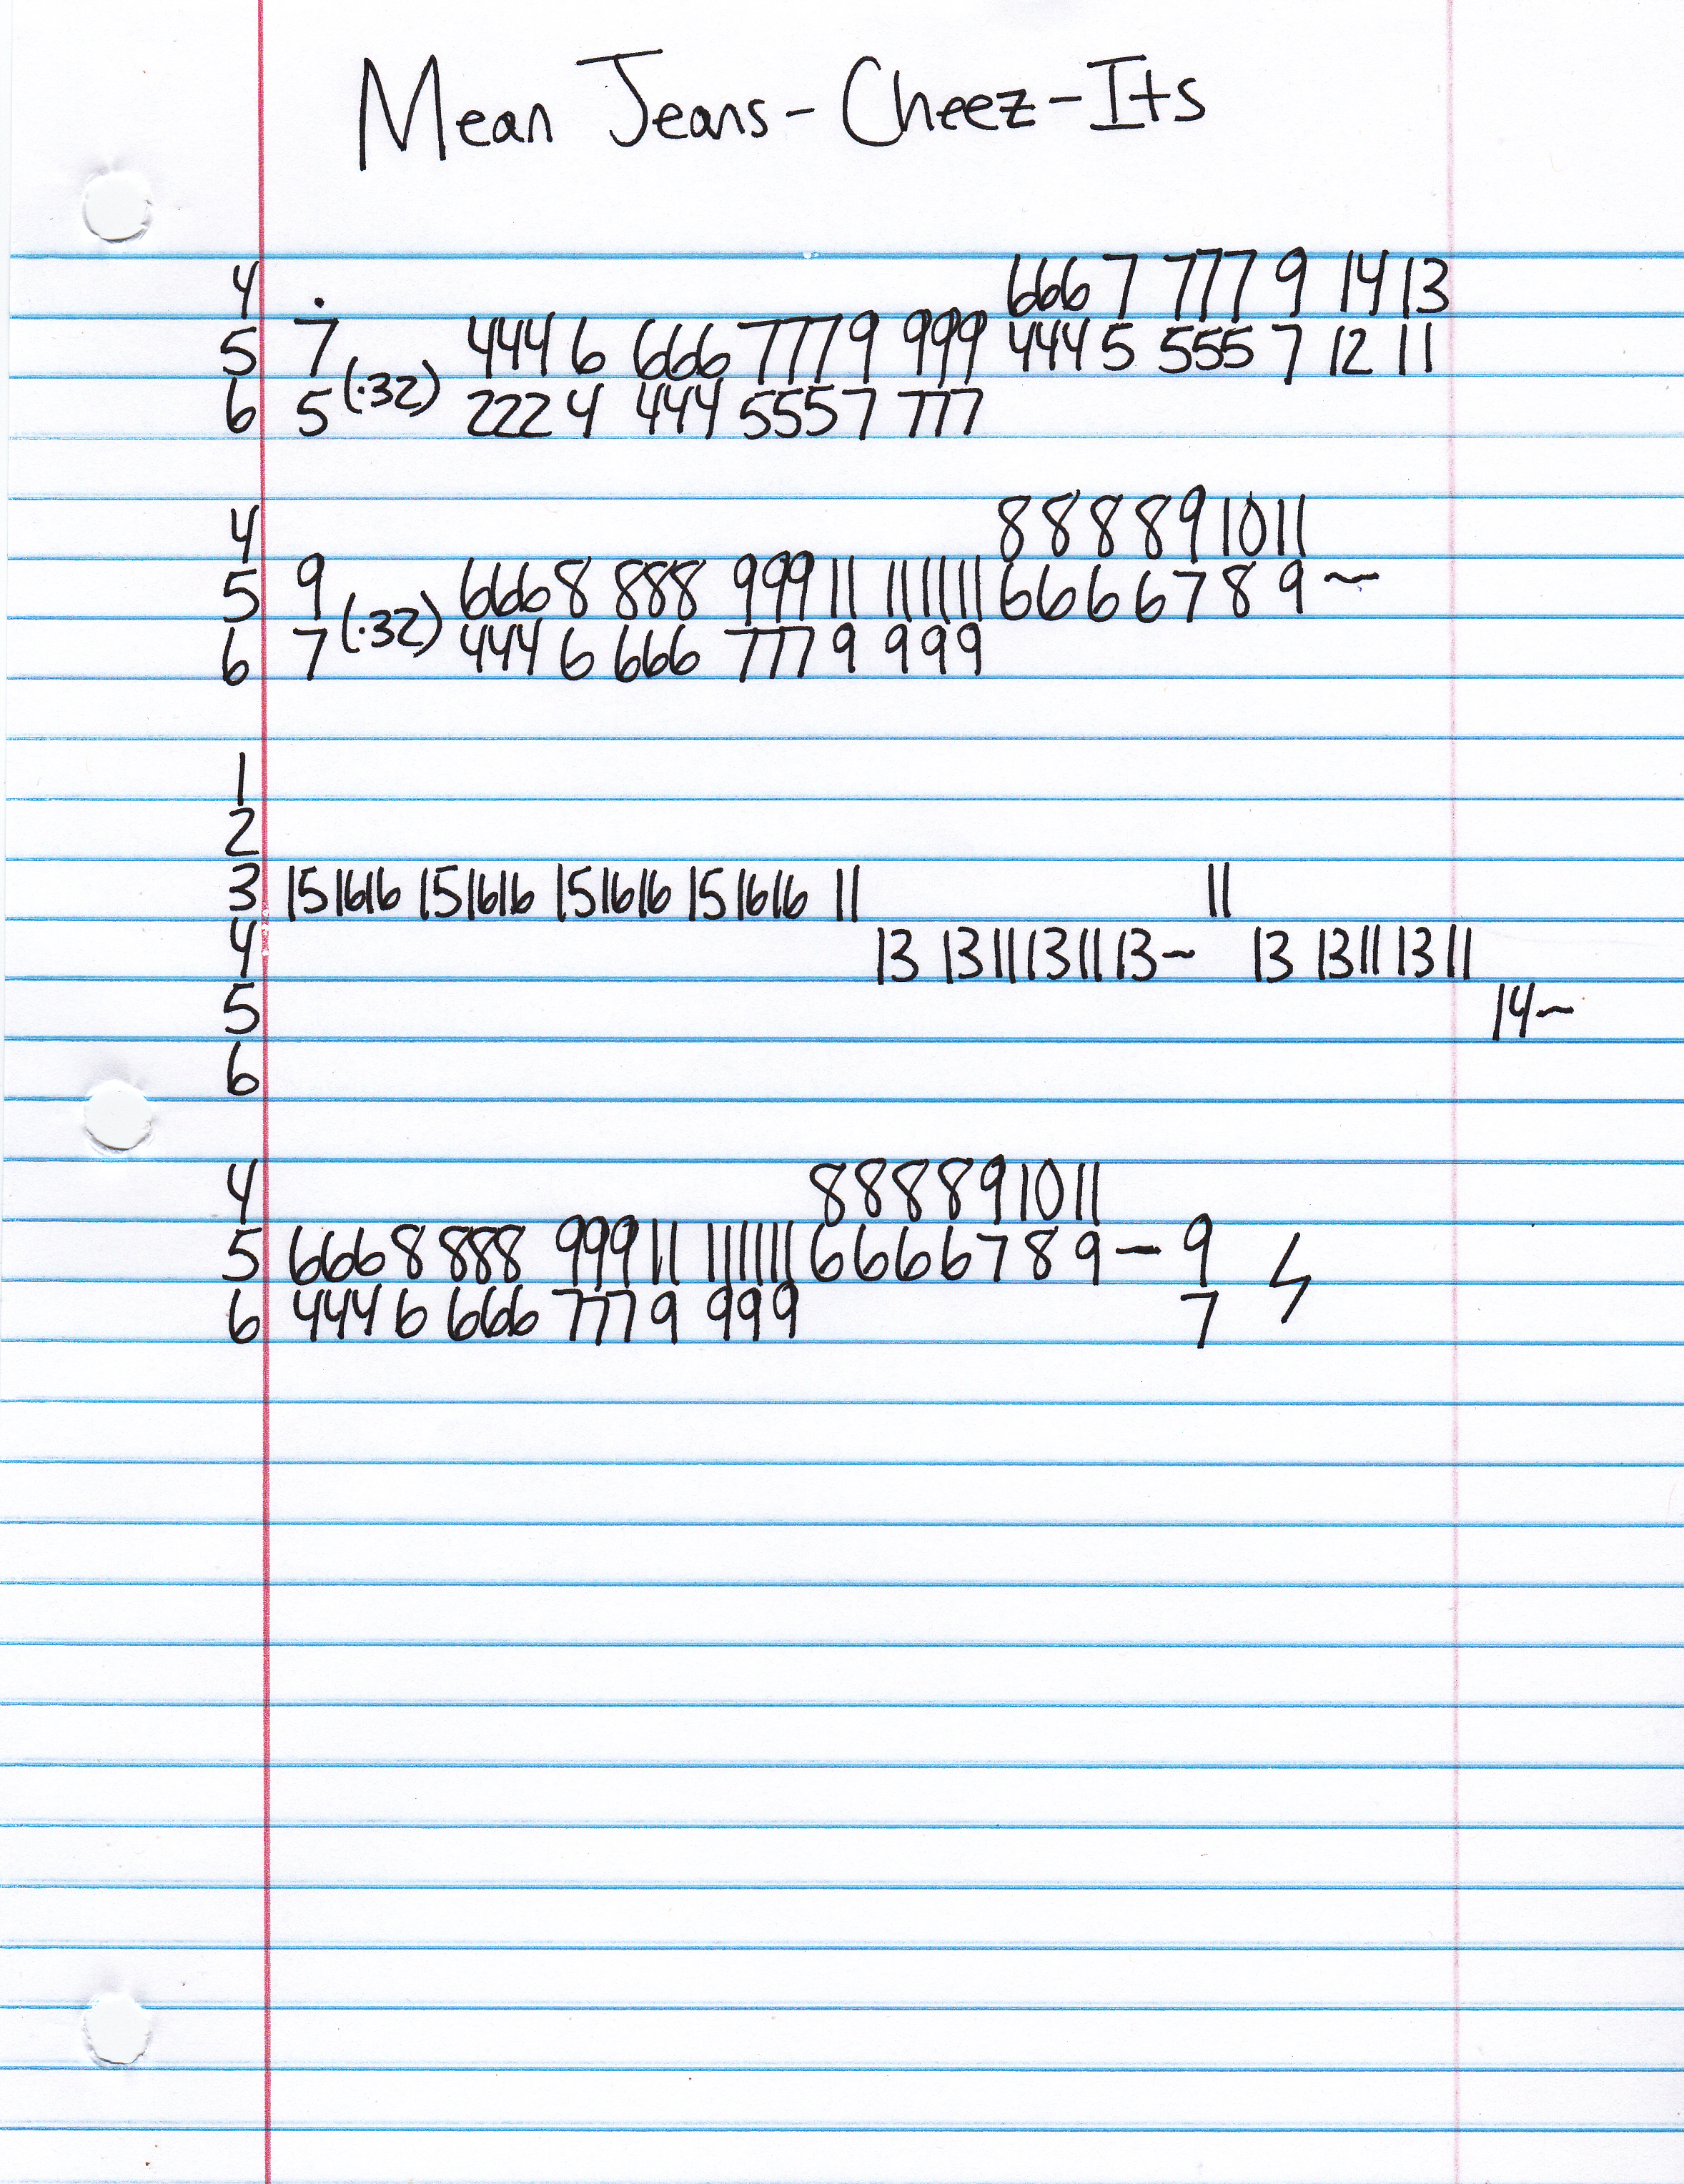 Mean Jeans - Cheez-Its
4 . 666 7 777 9 14 13
5 7 (·32) 444 6 666 7779 999 444 5 555 7 12 11
6 5 222 4 444 5557 777
4 8 8 8 8 9 10 11
5 9 (·32) 6668 888 999 11 11 11 11 6 6 6 6 7 8 9 ~
6 7 444 6 666 777 9 999
1
2
3 151616 151616 151616 151616 11 11
4 13 13 11 13 11 13~ 13 13 11 13 11
5 14~
6
4 8 8 8 8 9 10 11
5 666 8 888 999 11 11 11 11 6 6 6 6 7 8 9 — 9
6 444 6 666 777 9 999 7